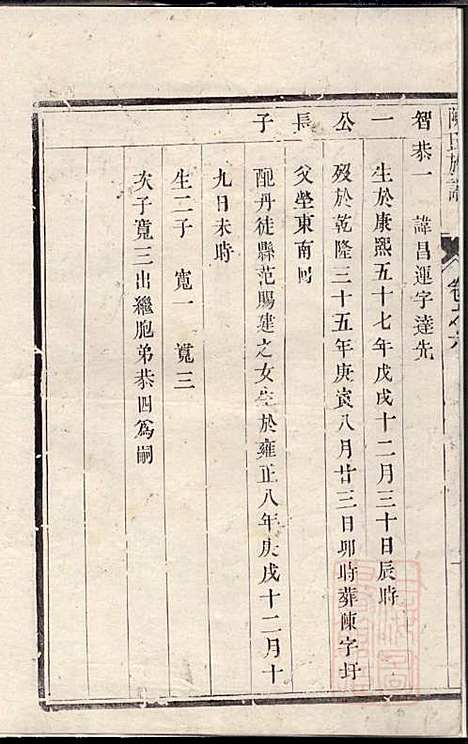 陳氏族譜
卷之六
智恭一 諱昌運字達先
一公長子
生於康熙五十七年戊戌十二月三十日辰時
歿於乾隆三十五年庚寅八月廿三日卯時葬陳字圩
父塋東南囘
配丹徒縣范賜建之女生於雍正八年庚戌十二月十
九日未時
生二子 寬一 寬三
次子寬三出繼胞弟恭四為嗣